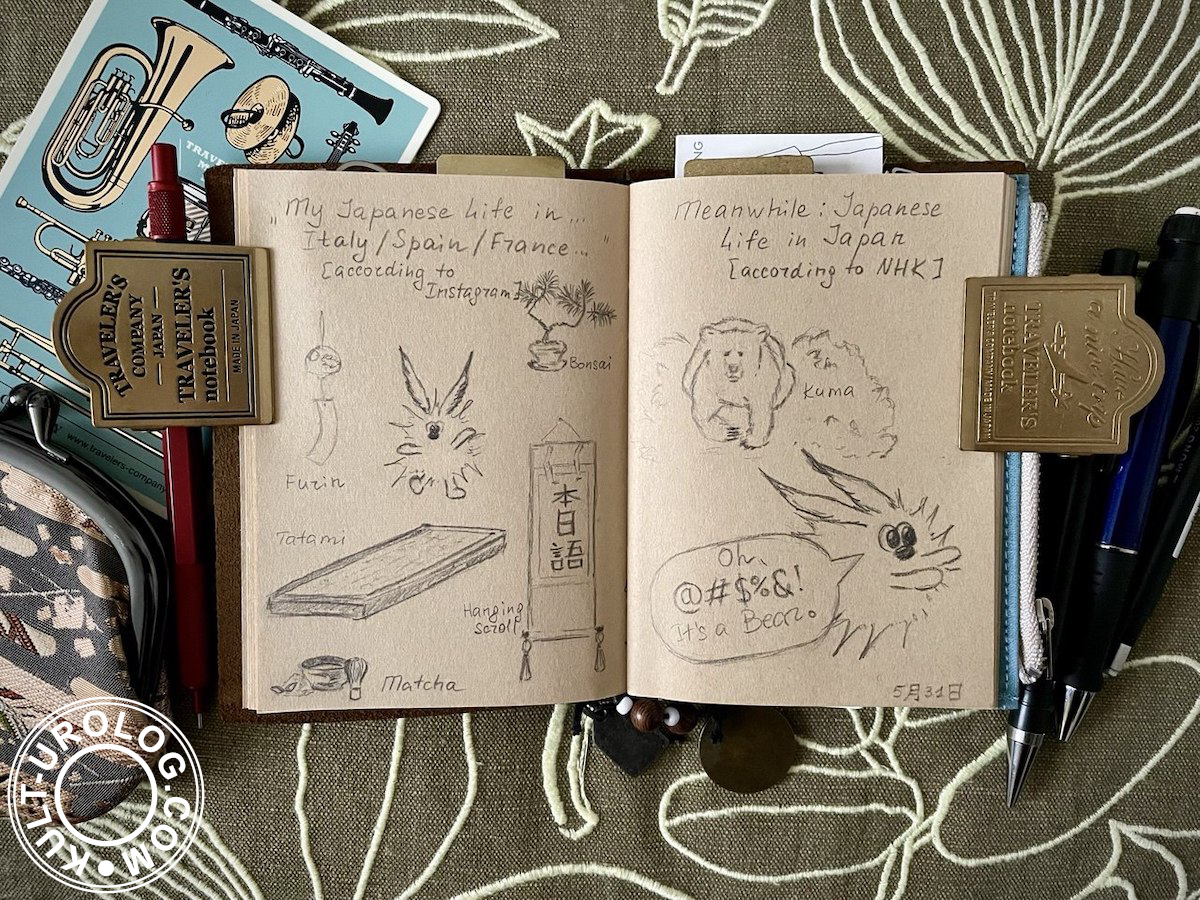 „My Japanese Life in...
Italy/Spain/France..."
[according to
Instagram]
Bonsai
Furin
Tatami
本日語
Hanging
scroll
Matcha
Meanwhile: Japanese
Life in Japan
[according to NHK]
Kuma
Oh,
@#$%&!
It's a Bear.
5月31日
TRAVELER'S
COMPANY
JAPAN
TRAVELER'S
notebook
MADE IN JAPAN
Have
a nice trip
TRAVELER'S
notebook
www.travelers-company
KULT-UROLOG.COM